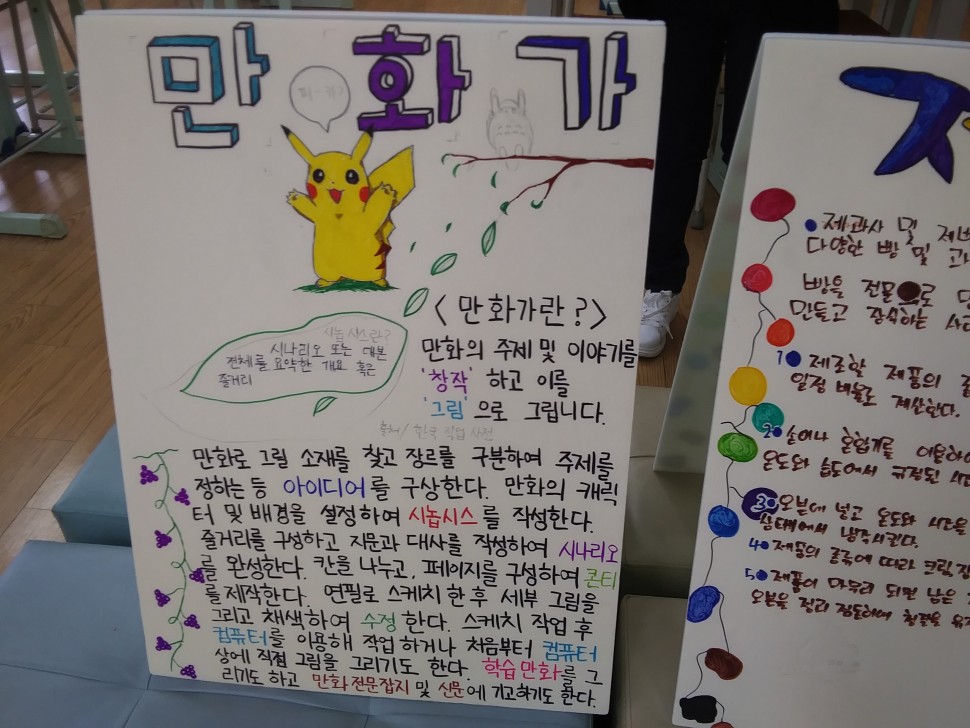 만화가
피-카?
<만화가란?>
만화의 주제 및 이야기를
'창작' 하고 이를
'그림'으로 그립니다.
출처/ 한국 직업 사전
시놉시스란?
시나리오 또는 대본
전체를 요약한 개요 혹은
줄거리
만화로 그릴 소재를 찾고 장르를 구분하여 주제를
정하는 등 아이디어를 구상한다. 만화의 캐릭
터 및 배경을 설정하여 시놉시스를 작성한다.
줄거리를 구성하고 지문과 대사를 작성하여 시나리오
를 완성한다. 칸을 나누고, 페이지를 구성하여 콘티
를 제작한다. 연필로 스케치 한 후 세부 그림을
그리고 채색하여 수정한다. 스케치 작업 후
컴퓨터를 이용해 작업 하거나 처음부터 컴퓨터
상에 직접 그림을 그리기도 한다. 학습만화를 그
리기도 하고 만화전문잡지 및 신문에 기고하기도 한다.
제과사 및 제빵
다양한 빵 및 과
빵을 전문으로
만들고 장식하는
1 제조할 제품의
일정 비율로 계산한다.
2 손이나 혼합기를 이용하여
온도와 습도에서 규정된 시
3 오븐에 넣고 온도와 시간을
상태에서 냉각시킨다.
4 제품의 종류에 따라 크림,
5 제품이 마무리 되면 남은
오븐을 점검 정돈하여 청결을 유지